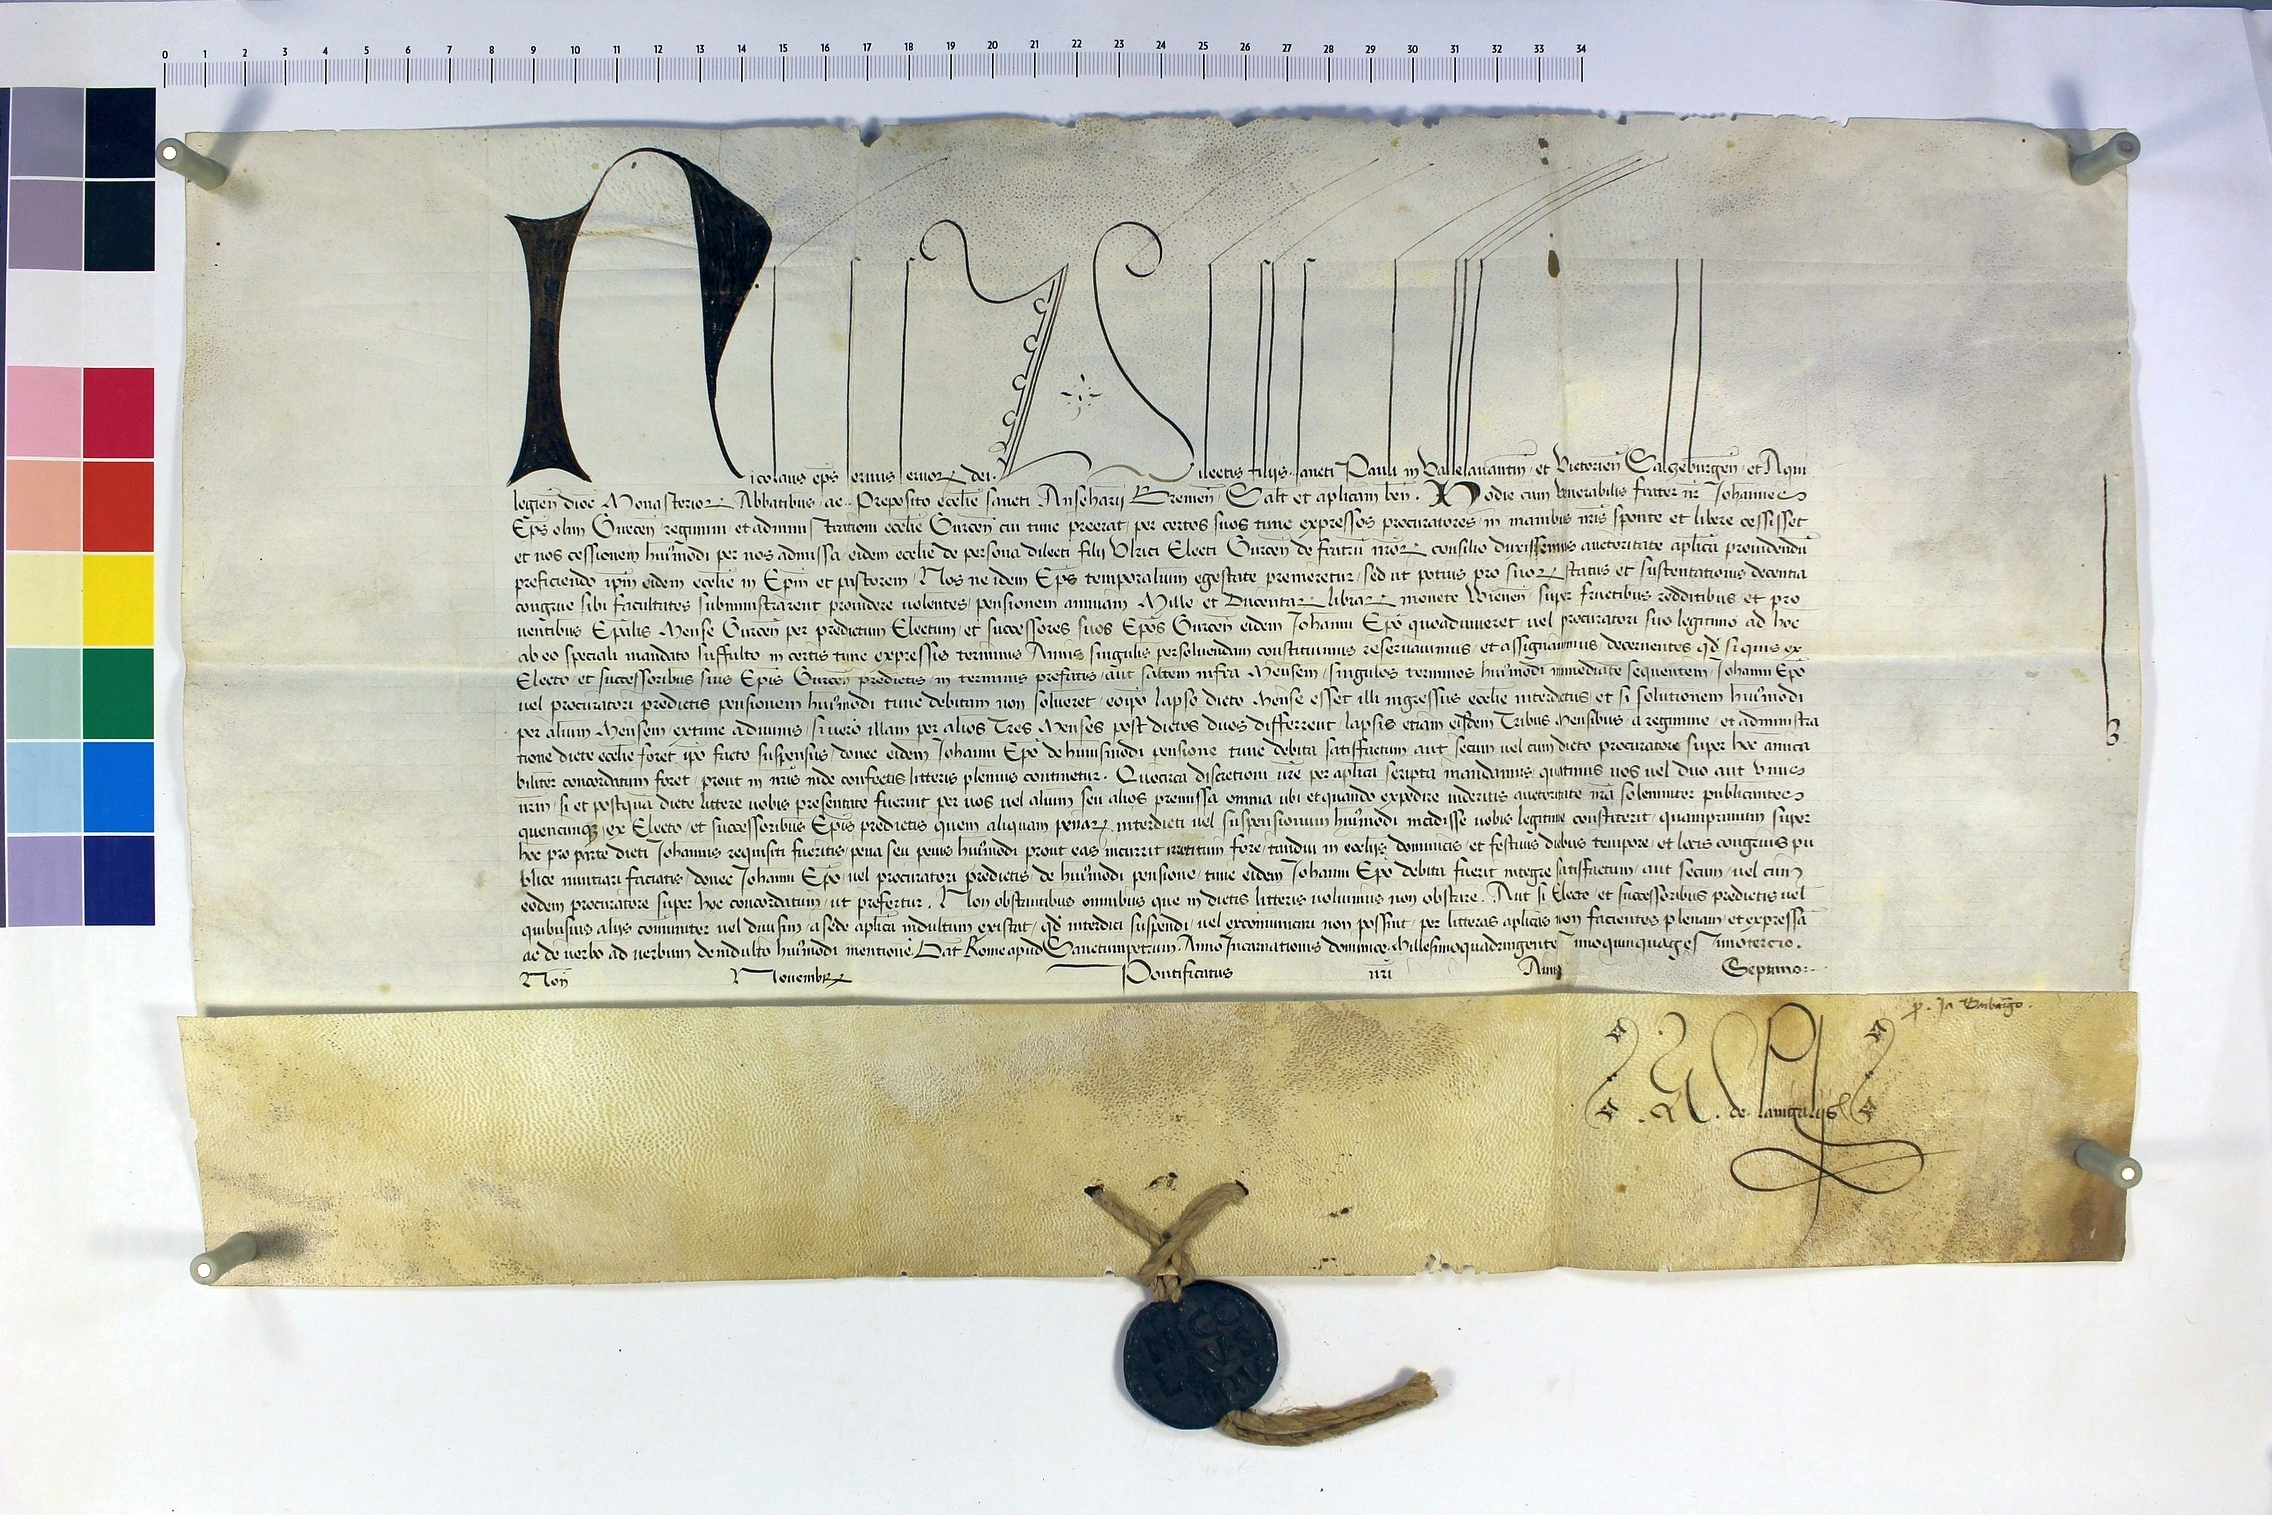 0 1 2 3 4 5 6 7 8 9 10 11 12 13 14 15 16 17 18 19 20 21 22 23 24 25 26 27 28 29 30 31 32 33 34
Nicolaus ep̄s servus servoꝝ dei. Dilectis filijs sancti Pauli in Vallelavantin̄, et Victorien̄ Saltzeburgen̄, et Aqui
legien̄ dioc̄ Monasterioꝝ Abbatibus, ac Preposito eccl̄ie sancti Anscharij Bremen̄, Sal̄t et apl̄icam ben̄. Hodie cum Venerabilis frater nr̄ Johannes
Ep̄s olim Gurcen̄ regimini et administrationi eccl̄ie Gurcen̄ cui tunc preerat, per certos suos tunc expressos procuratores, in manibus nr̄is sponte et libere cessisset
et nos cessionem hui'modi per nos admissa, eidem eccl̄ie de persona dilecti filij Ulrici Electi Gurcen̄ de fratrū nr̄oꝝ consilio duxissemus auctoritate apl̄ica providendū
preficiendo ip̄m eidem eccl̄ie in Ep̄m et pastorem, Nos ne idem Ep̄s temporalium egestate premeretur, sed ut potius pro suoꝝ status et sustentationis decentia
congrue sibi facultates subministrarent providere volentes, pensionem annuam Mille et Ducentaꝝ libraꝝ monete Wienen̄, super fructibus redditibus et pro
ventibus Ep̄alis Mense Gurcen̄ per predictum Electum, et successores suos Ep̄os Gurcen̄ eidem Johanni Ep̄o quoadviveret vel procuratori suo legitimo ad hoc
ab eo speciali mandato suffulto in certis tunc expressis terminis Annis singulis persolvendam constituimus reservavimus, et assignavimus, decernentes qd̄ si quis ex
Electo, et successoribus suis Ep̄is Gurcen̄ predictis, in terminis prefatis, aut saltem infra Mensem, singulos terminos hui'modi immediate sequentem, Johanni Ep̄o
vel procuratori predictis pensionem hui'modi tunc debitam non solveret, eoip̄o lapso dicto Mense esset illi ingressus eccl̄ie interdictus, et si solutionem hui'modi
per alium Mensem, extunc a divinis, si vero illam per alios Tres Menses post dictos duos differrent, lapsis etiam eisdem Tribus Mensibus, a regimine, et administra
tione dicte eccl̄ie foret ip̄o facto suspensus, donec eidem Johanni Ep̄o de huiusmodi pensione tunc debita satisfactum aut secum vel cum dicto procuratore super hoc amica
biliter concordatum foret, prout in nr̄is inde confectis litteris plenius continetur. Quocirca discretioni vr̄e per apl̄ica scripta mandamus, quatinus vos vel duo aut unus
vr̄m, si et postquā dicte littere vobis presentate fuerint per vos vel alium seu alios premissa omnia, ubi et quando expedire videritis auctoritate nr̄a solenniter publicantes
quencunqꝫ, ex Electo, et successoribus Ep̄is predictis quem aliquam penaꝝ interdicti vel suspensionum hui'modi incidisse vobis legitime constiterit, quamprimum super
hoc pro parte dicti Johannis requisiti fueritis, pena seu penis hui'modi prout eas incurrit irretitum fore, tandiu in eccl̄ijs dominicis, et festivis diebus tempore, et locis congruis pu
blice nuntiari faciatis, donec Johanni Ep̄o, vel procuratori predictis, de hui'modi pensione, tunc eidem Johanni Ep̄o debita fuerit integre satisfactum, aut secum, vel cum
eodem procuratore super hoc concordatum, ut prefertur. Non obstantibus omnibus que in dictis litteris volumus non obstare. Aut si Electo, et successoribus predictis vel
quibusvis alijs co͞muniter vel divisim, a sede apl̄ica indultum existat, qd̄ interdici suspendi, vel exco͞municari non possint, per litteras apl̄icas non facientes plenam, et expressā
ac de verbo ad verbum de indulto hui'modi mentionē. Dat̄ Rome apud Sanctumpetrum. Anno Incarnationis dominice. Millesimoquadringentesimoquinquagesimotercio.
Non̄ Novembꝝ Pontificatus nr̄i Anno Septimo.
p̄. Ja
A. de
NICO
LAVS
PP V